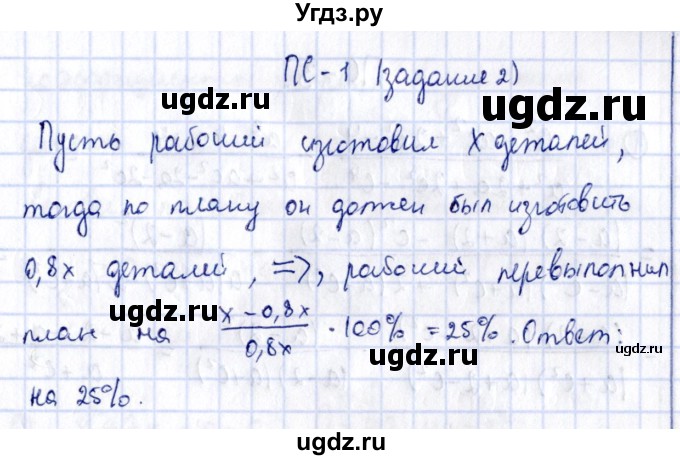 Угдз.ру
ПС-1 (задание 2)
ugdz.ru ugdz.ru
Пусть рабочий изготовил x деталей,
тогда по плану он должен был изготовить
ugdz.ru ugdz.ru
0,8x деталей, =>, рабочий перевыполнил
план на (x - 0,8x)/(0,8x) · 100% = 25%. Ответ:
ugdz.ru ugdz.ru ugdz.ru
на 25%.
ugdz.ru